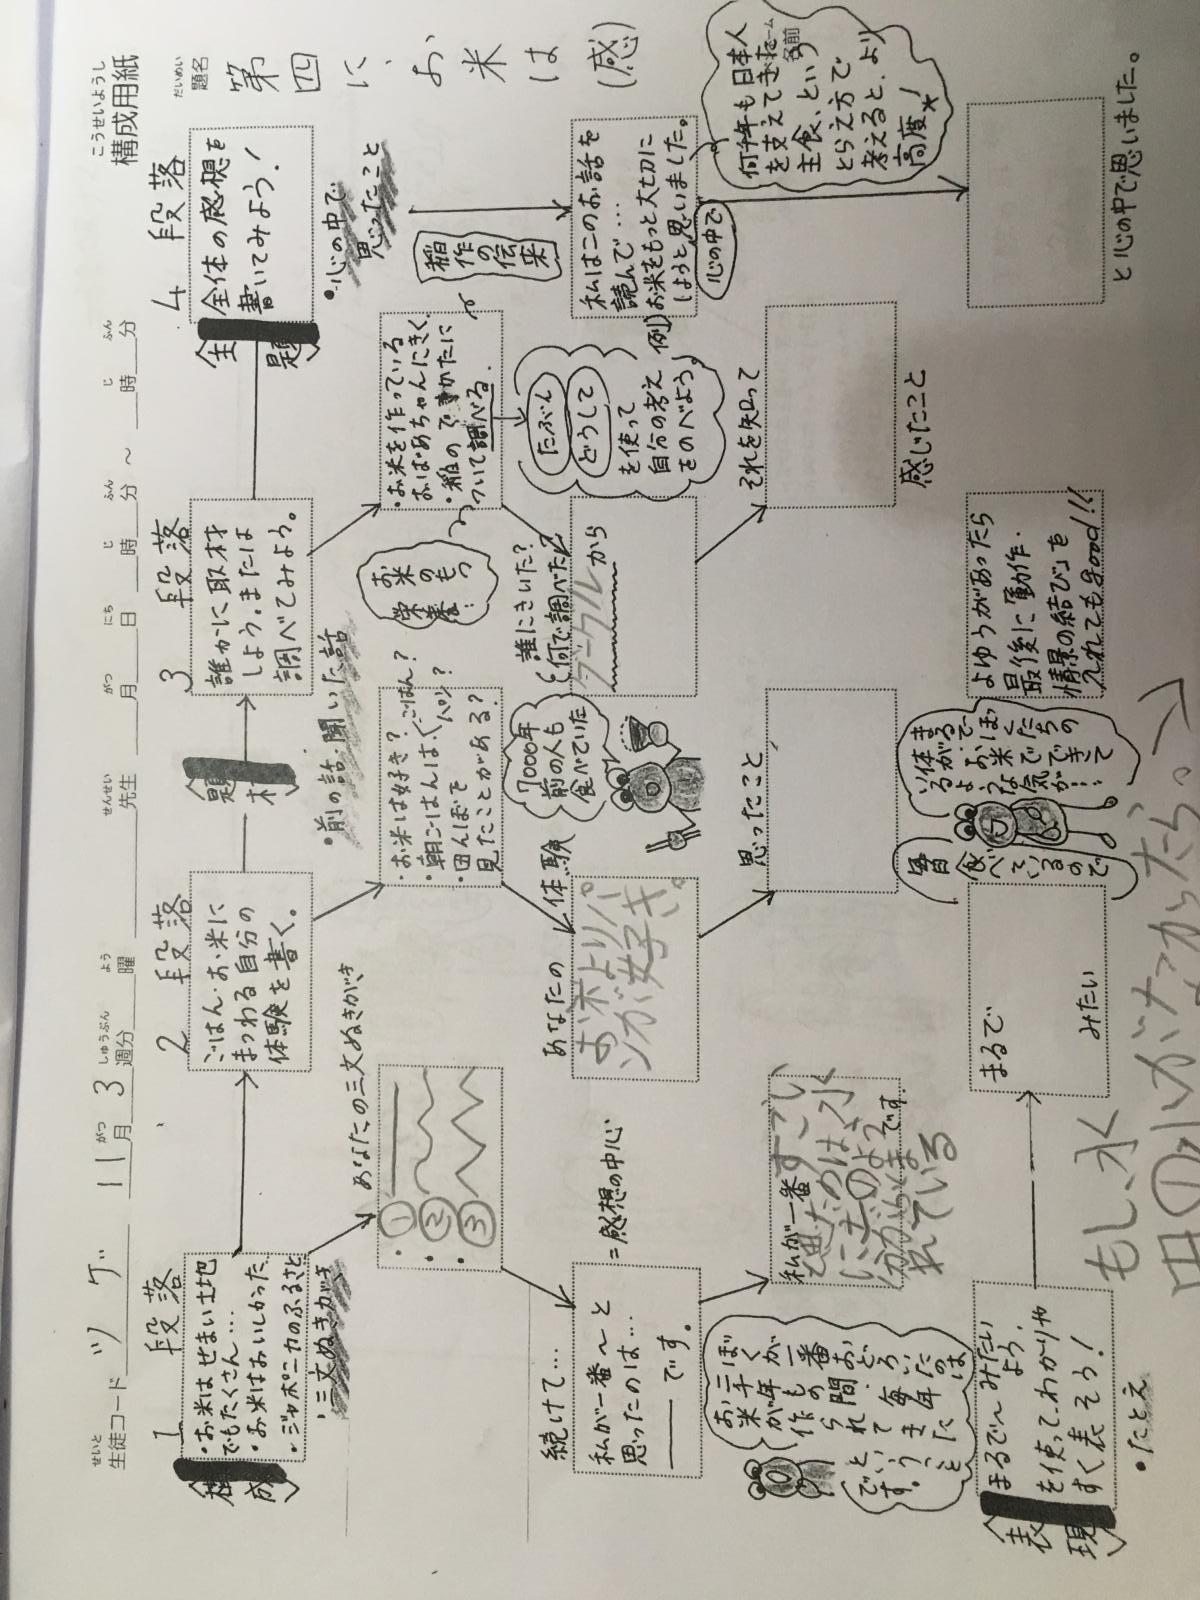 こうせいようし
構成用紙
せいと
生徒コード ツ ゲ 11月 3週分 曜 先生 月 日 時 分 ~ 時 分
がつ しゅうぶん よう せんせい がつ にち じ ふん じ ふん
だいめい
題名
第四に、お米は(感)
名前
1段落
構成
・お米はせまい土地
でもたくさん…
・お米はおいしかった
・ジャポニカのふるさと
・三文ぬきがき
あなたの三文ぬきがき
・①
・②
・③
続けて…
私が一番~と
思ったのは…
です。
=感想の中心
私が一番
です。
ぼくが一番おどろいたのは
お米が作られて
ということ
です。
表現
まるで~みたい
よう、
を使ってわかりや
すく表そう!
・たとえ
2段落
ごはん・お米に
まつわる自分の
体験を書く。
・お米は好き?
・朝ごはんは?
ごはん?
パン?
・田んぼを
見たことがある?
あなたの体験
お米よりパ
ンが好き。
7000年
前の人も
食べていた
思ったこと
まるで
みたい
毎日
食べているので
まるで、ぼくたちの
体が、お米でできて
いるような気が…
題材
・前の話、聞いた話
3段落
誰かに取材
しよう。または
調べてみよう。
・お米を作っている
おばあちゃんにきく。
・稲のでかたに
ついて調べる。
お米のもつ
栄養…
稲作の伝来
誰にきいた?
何で調べた?
グーグルから
たぶん
どうして
を使って
自分の考え
をのべよう。
それを知って
感じたこと
よゆうがあったら
最後に「動作・
情景の結び」を
入れてもgood!!
4段落
主題
全体の感想を
書いてみよう!
・心の中で
思ったこと
例)
私はこのお話を
読んで…
お米をもっと大切に
しようと思いました。
心の中で
何千年も日本人
を支えてきた
主食、という
とらえ方で
考えると、より
高度!
と心の中で思いました。
もし、水
田①がなかったら。